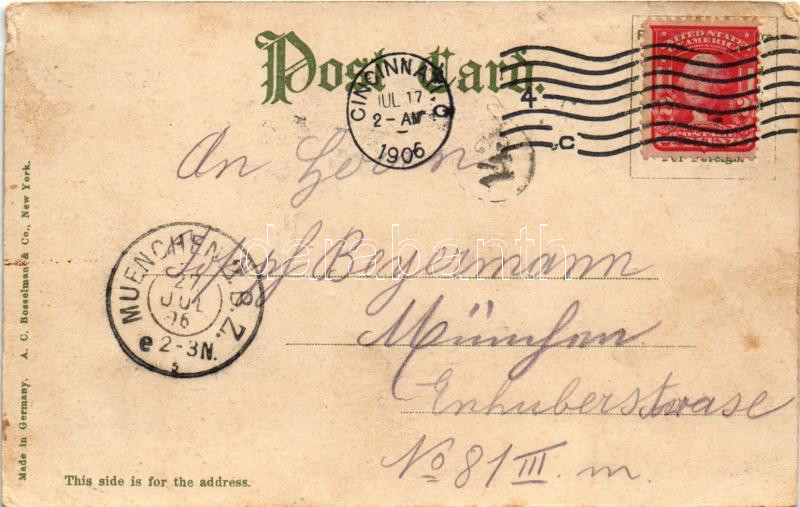 Post Card.
CINCINNATI, O.
JUL 17
2 - AM
1906
4
C
UNITED STATES OF AMERICA
POSTAGE
An Herrn
Josef Beyermann
München
Enhuberstrase
No 81 III. m.
MUENCHEN 2. B.Z.
JUL
06
e 2-3N.
This side is for the address.
Made in Germany. A. C. Bosselman & Co., New York.
darabanth